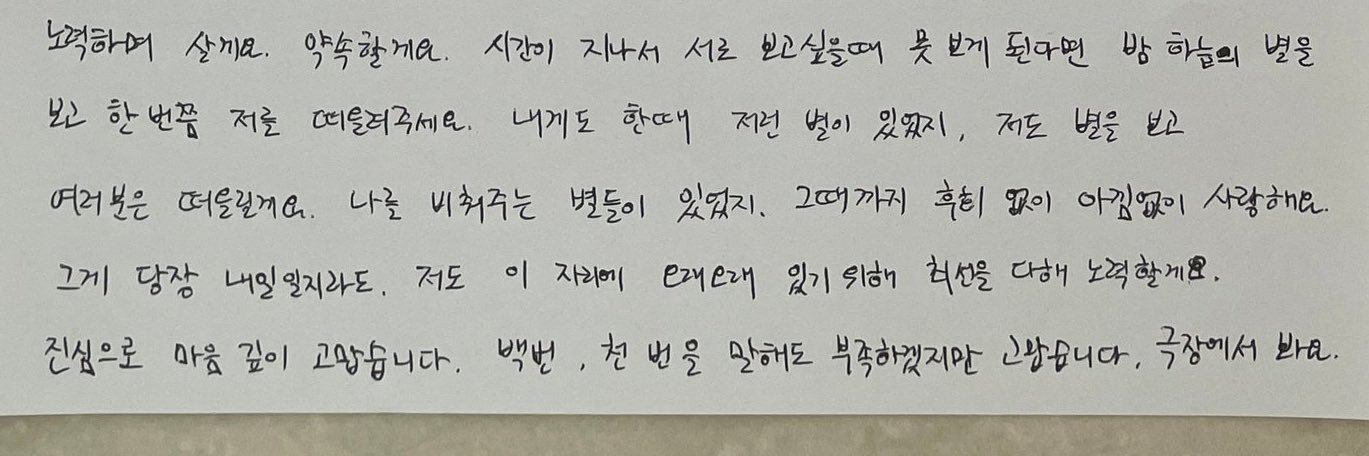 노력하며 살게요. 약속할게요. 시간이 지나서 서로 보고싶을때 못 보게 된다면 밤 하늘의 별을
보고 한번쯤 저를 떠올려주세요. 내게도 한때 저런 별이 있었지, 저도 별을 보고
여러분은 떠올릴게요. 나를 비춰주는 별들이 있었지. 그때까지 후회 없이 아낌없이 사랑해요.
그게 당장 내일일지라도. 저도 이 자리에 오래오래 있기 위해 최선을 다해 노력할게요.
진심으로 마음 깊이 고맙습니다. 백번, 천 번을 말해도 부족하겠지만 고맙습니다. 극장에서 봐요.